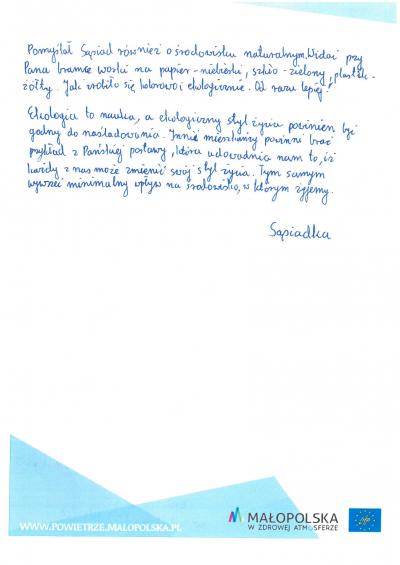 Pomyślał Sąsiad również o środowisku naturalnym. Widać przy
Pana bramce worki na papier - niebieski, szkło - zielony, plastik -
żółty. Jak zrobiło się kolorowo i ekologicznie. Od razu lepiej!
Ekologia to nauka, a ekologiczny styl życia powinien być
godny do naśladowania. Inni mieszkańcy powinni brać
przykład z Pańskiej postawy, która udowadnia nam to, iż
każdy z nas może zmienić swój styl życia. Tym samym
wywrzeć minimalny wpływ na środowisko, w którym żyjemy.
Sąsiadka
WWW.POWIETRZE.MALOPOLSKA.PL
MAŁOPOLSKA
W ZDROWEJ ATMOSFERZE
life